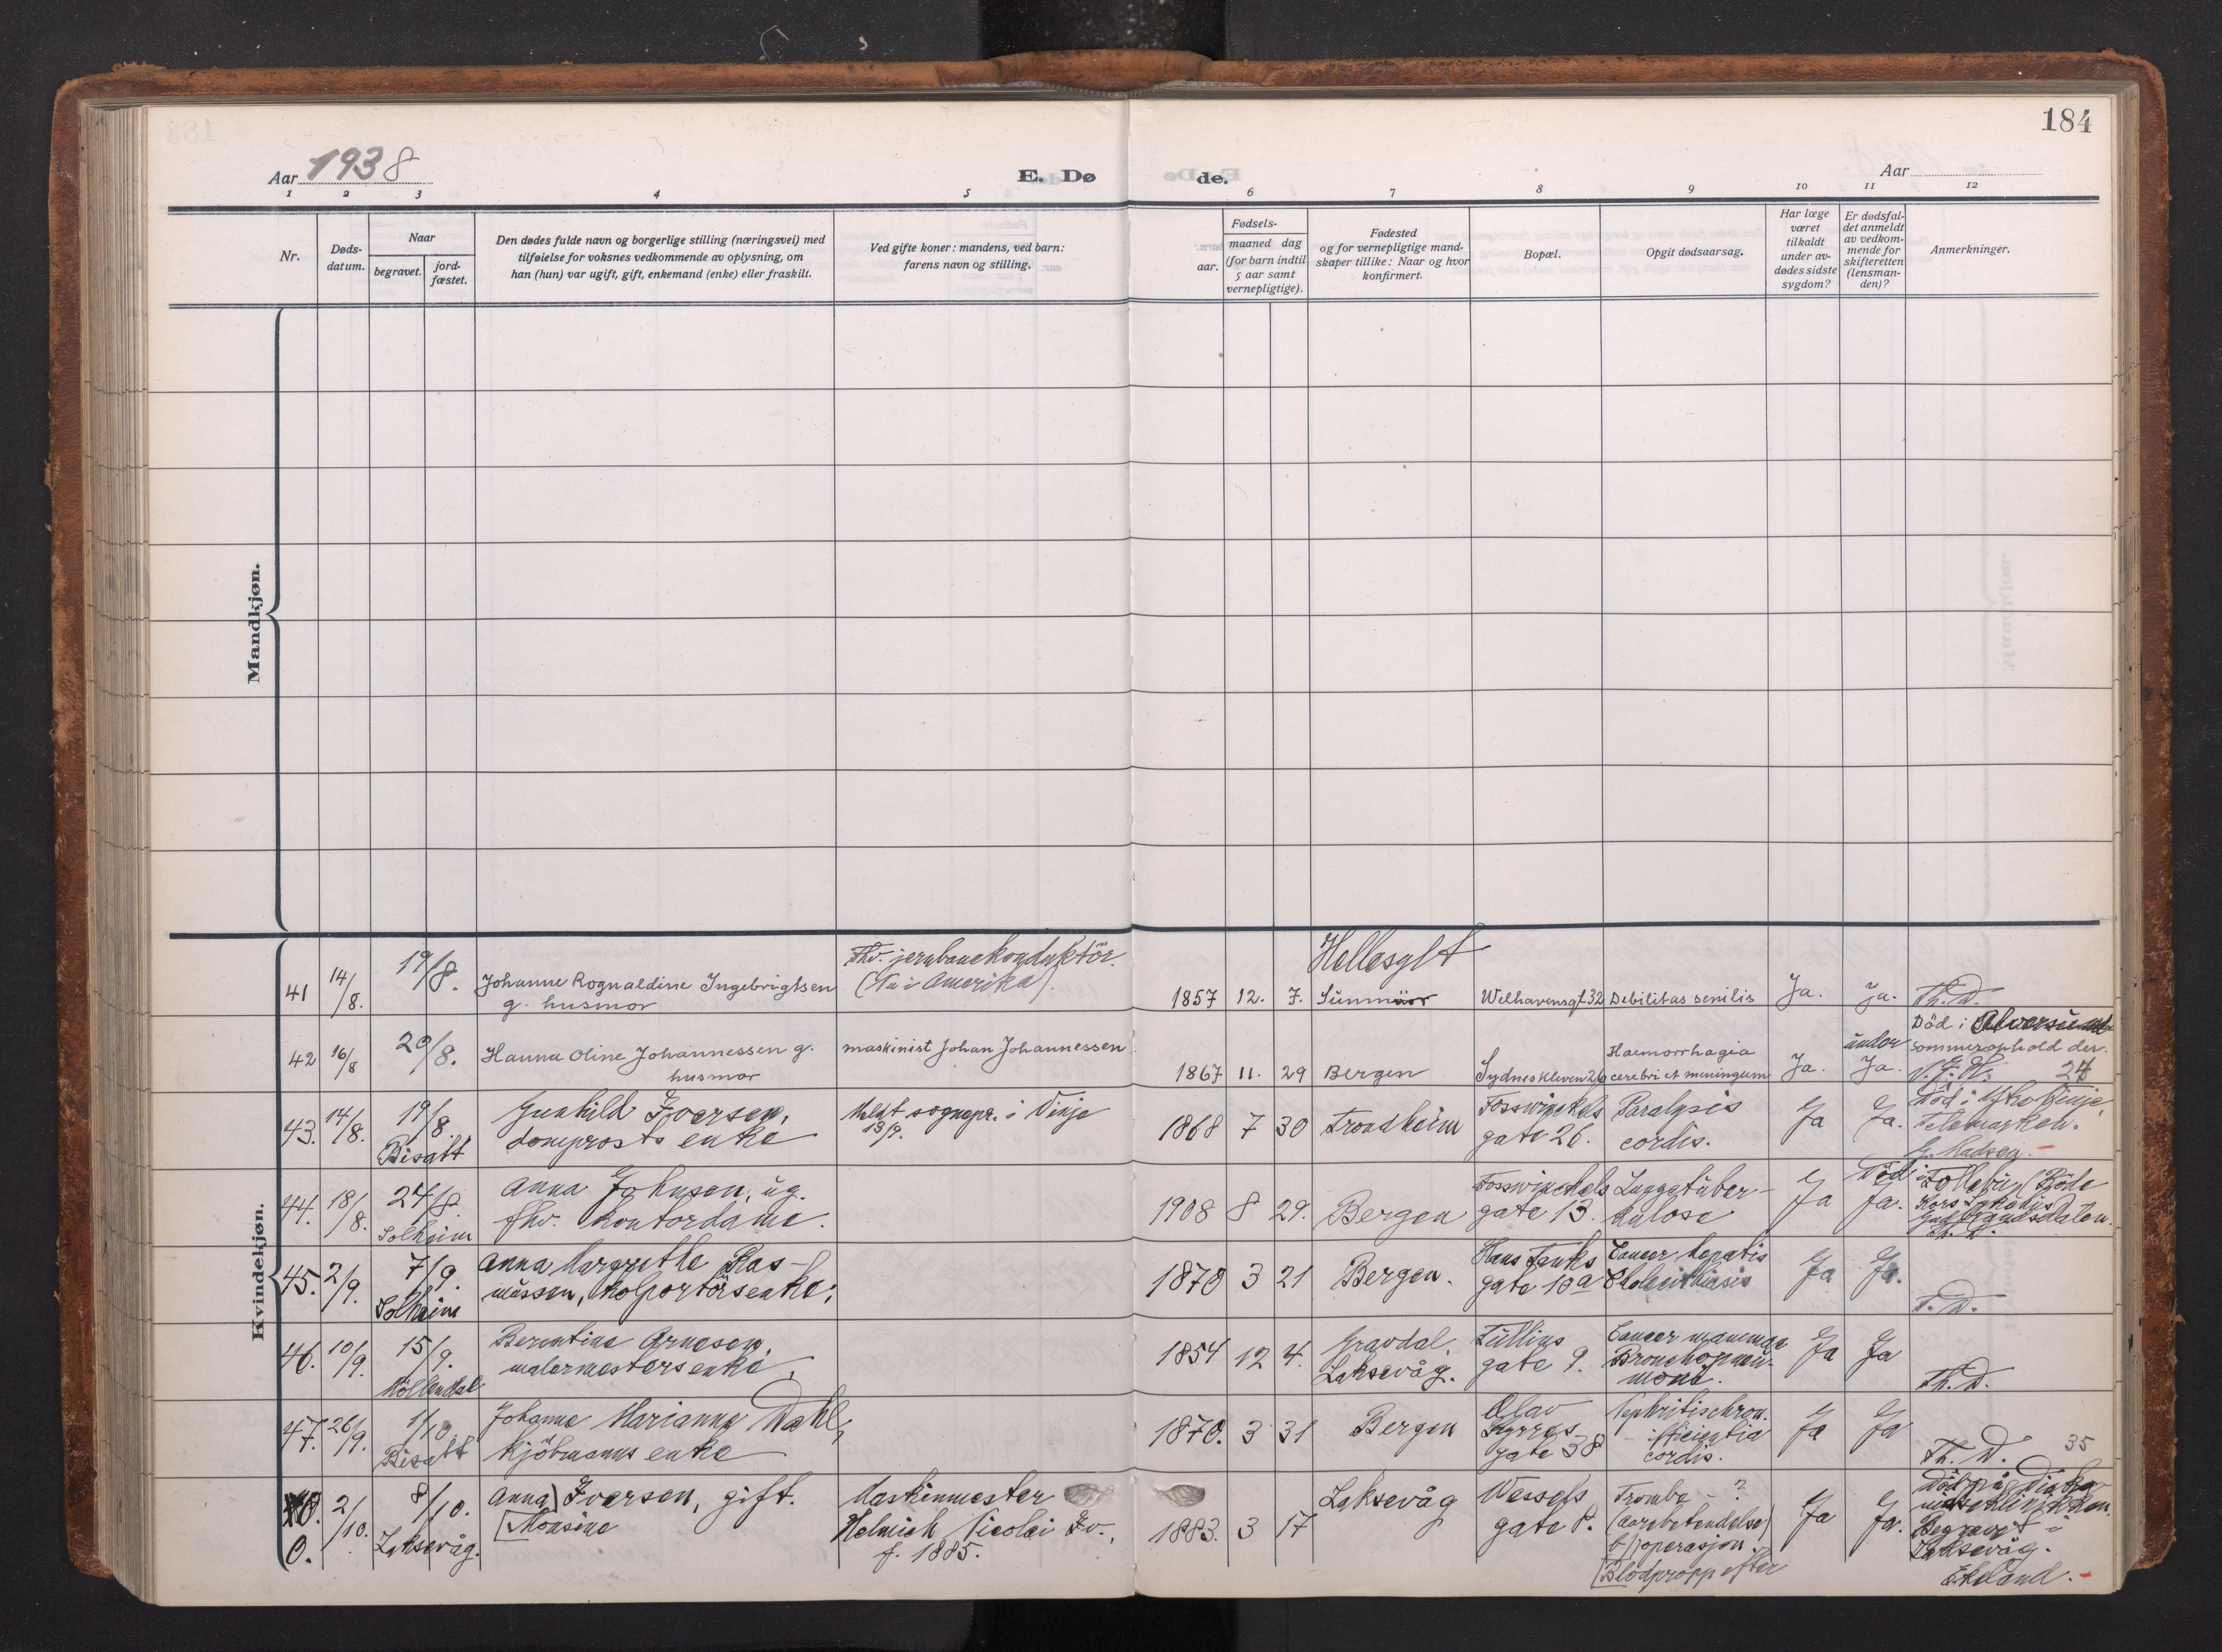 184
Aar 1938
E. Dø
de.
Aar
1 2 3 4 5 6 7 8 9 10 11 12
Nr.
Døds-
datum.
Naar
begravet.
jord-
fæstet.
Den dødes fulde navn og borgerlige stilling (næringsvei) med
tilføielse for voksnes vedkommende av oplysning, om
han (hun) var ugift, gift, enkemand (enke) eller fraskilt.
Ved gifte koner: mandens, ved barn:
farens navn og stilling.
Fødsels-
aar.
maaned dag
(for barn indtil
5 aar samt
vernepligtige).
Fødested
og for vernepligtige mand-
skaper tillike: Naar og hvor
konfirmert.
Bopæl.
Opgit dødsaarsag.
Har læge
været
tilkaldt
under av-
dødes sidste
sygdom?
Er dødsfal-
det anmeldt
av vedkom-
mende for
skifteretten
(lensman-
den)?
Anmerkninger.
Mandkjøn.
Kvindekjøn.
41
14/8.
19/8.
Johanne Rognaldine Ingebrigtsen
g. husmor
Fhv. jernbanekonduktör.
(Nu i Amerika).
1857 12. 7.
Hellesylt
Sunmör
Welhavensgt 32
Debilitas senilis
Ja.
Ja.
Th. D.
42
16/8
20/8.
Hanna Oline Johannessen g.
husmor
maskinist Johan Johannessen
1867 11. 29
Bergen
Sydneskleven 26
Haemorrhagia
cerebri et meningum
Ja.
Ja.
Död i Alversund
under sommerophold der.
24
43.
14/8.
19/8
Bisatt
Gunhild Iversen,
domprosts enke
Meldt sognepr. i Vinje
13/9.
1868 7 30
Trondheim
Fosswinckels
gate 26.
Paralysis
cordis.
Ja
Ja.
Död i Vinje,
Telemarken.
G. Madsen.
44.
18/8.
24/8.
Solheim
Anna Johnsen, ug.
fhv. kontordame.
1908 8 29.
Bergen
Fosswinckels
gate 13.
Lungetuber-
kulose
Ja
Ja.
Död i Follebu, Röde
Kors
Gudbrandsdalen.
Th. D.
45.
2/9.
7/9.
Solheim
Anna Margrethe Ras-
mussen, kolportörsenke;
1870 3 21
Bergen.
Hans Tanks
gate 10a
Cancer hepatis
Cholelithiasis
Ja
Ja.
T. D.
46.
10/9.
15/9.
Möllendal
Berentine Arnesen,
malermesters enke.
1854 12 4.
Gravdal.
Laksevåg.
Tullins
gate 9.
Cancer mammae
Bronchopneu-
moni.
Ja
Ja
Th. D.
47.
26/9.
1/10.
Bisatt
Johanne Marianne Dahl,
kjöbmanns enke
1870. 3 31
Bergen
Olav
Kyrres
gate 38
Nephritis chron.
cordis.
Ja
Ja
Th. D.
35
0.
2/10.
8/10.
Laksevåg.
Anna Iversen, gift.
Monsine
Maskinmester
Helmich Nicolai Iv.,
f. 1885.
1883. 3 17
Laksevåg
Wessels
gate 8.
Trombe - ?
(aarebetendelse)
operasjon.
Blodpropp efter
Ja
Ja.
Död på Diako-
nisseklinikken.
Begravet i
Laksevåg.
Ekeland.